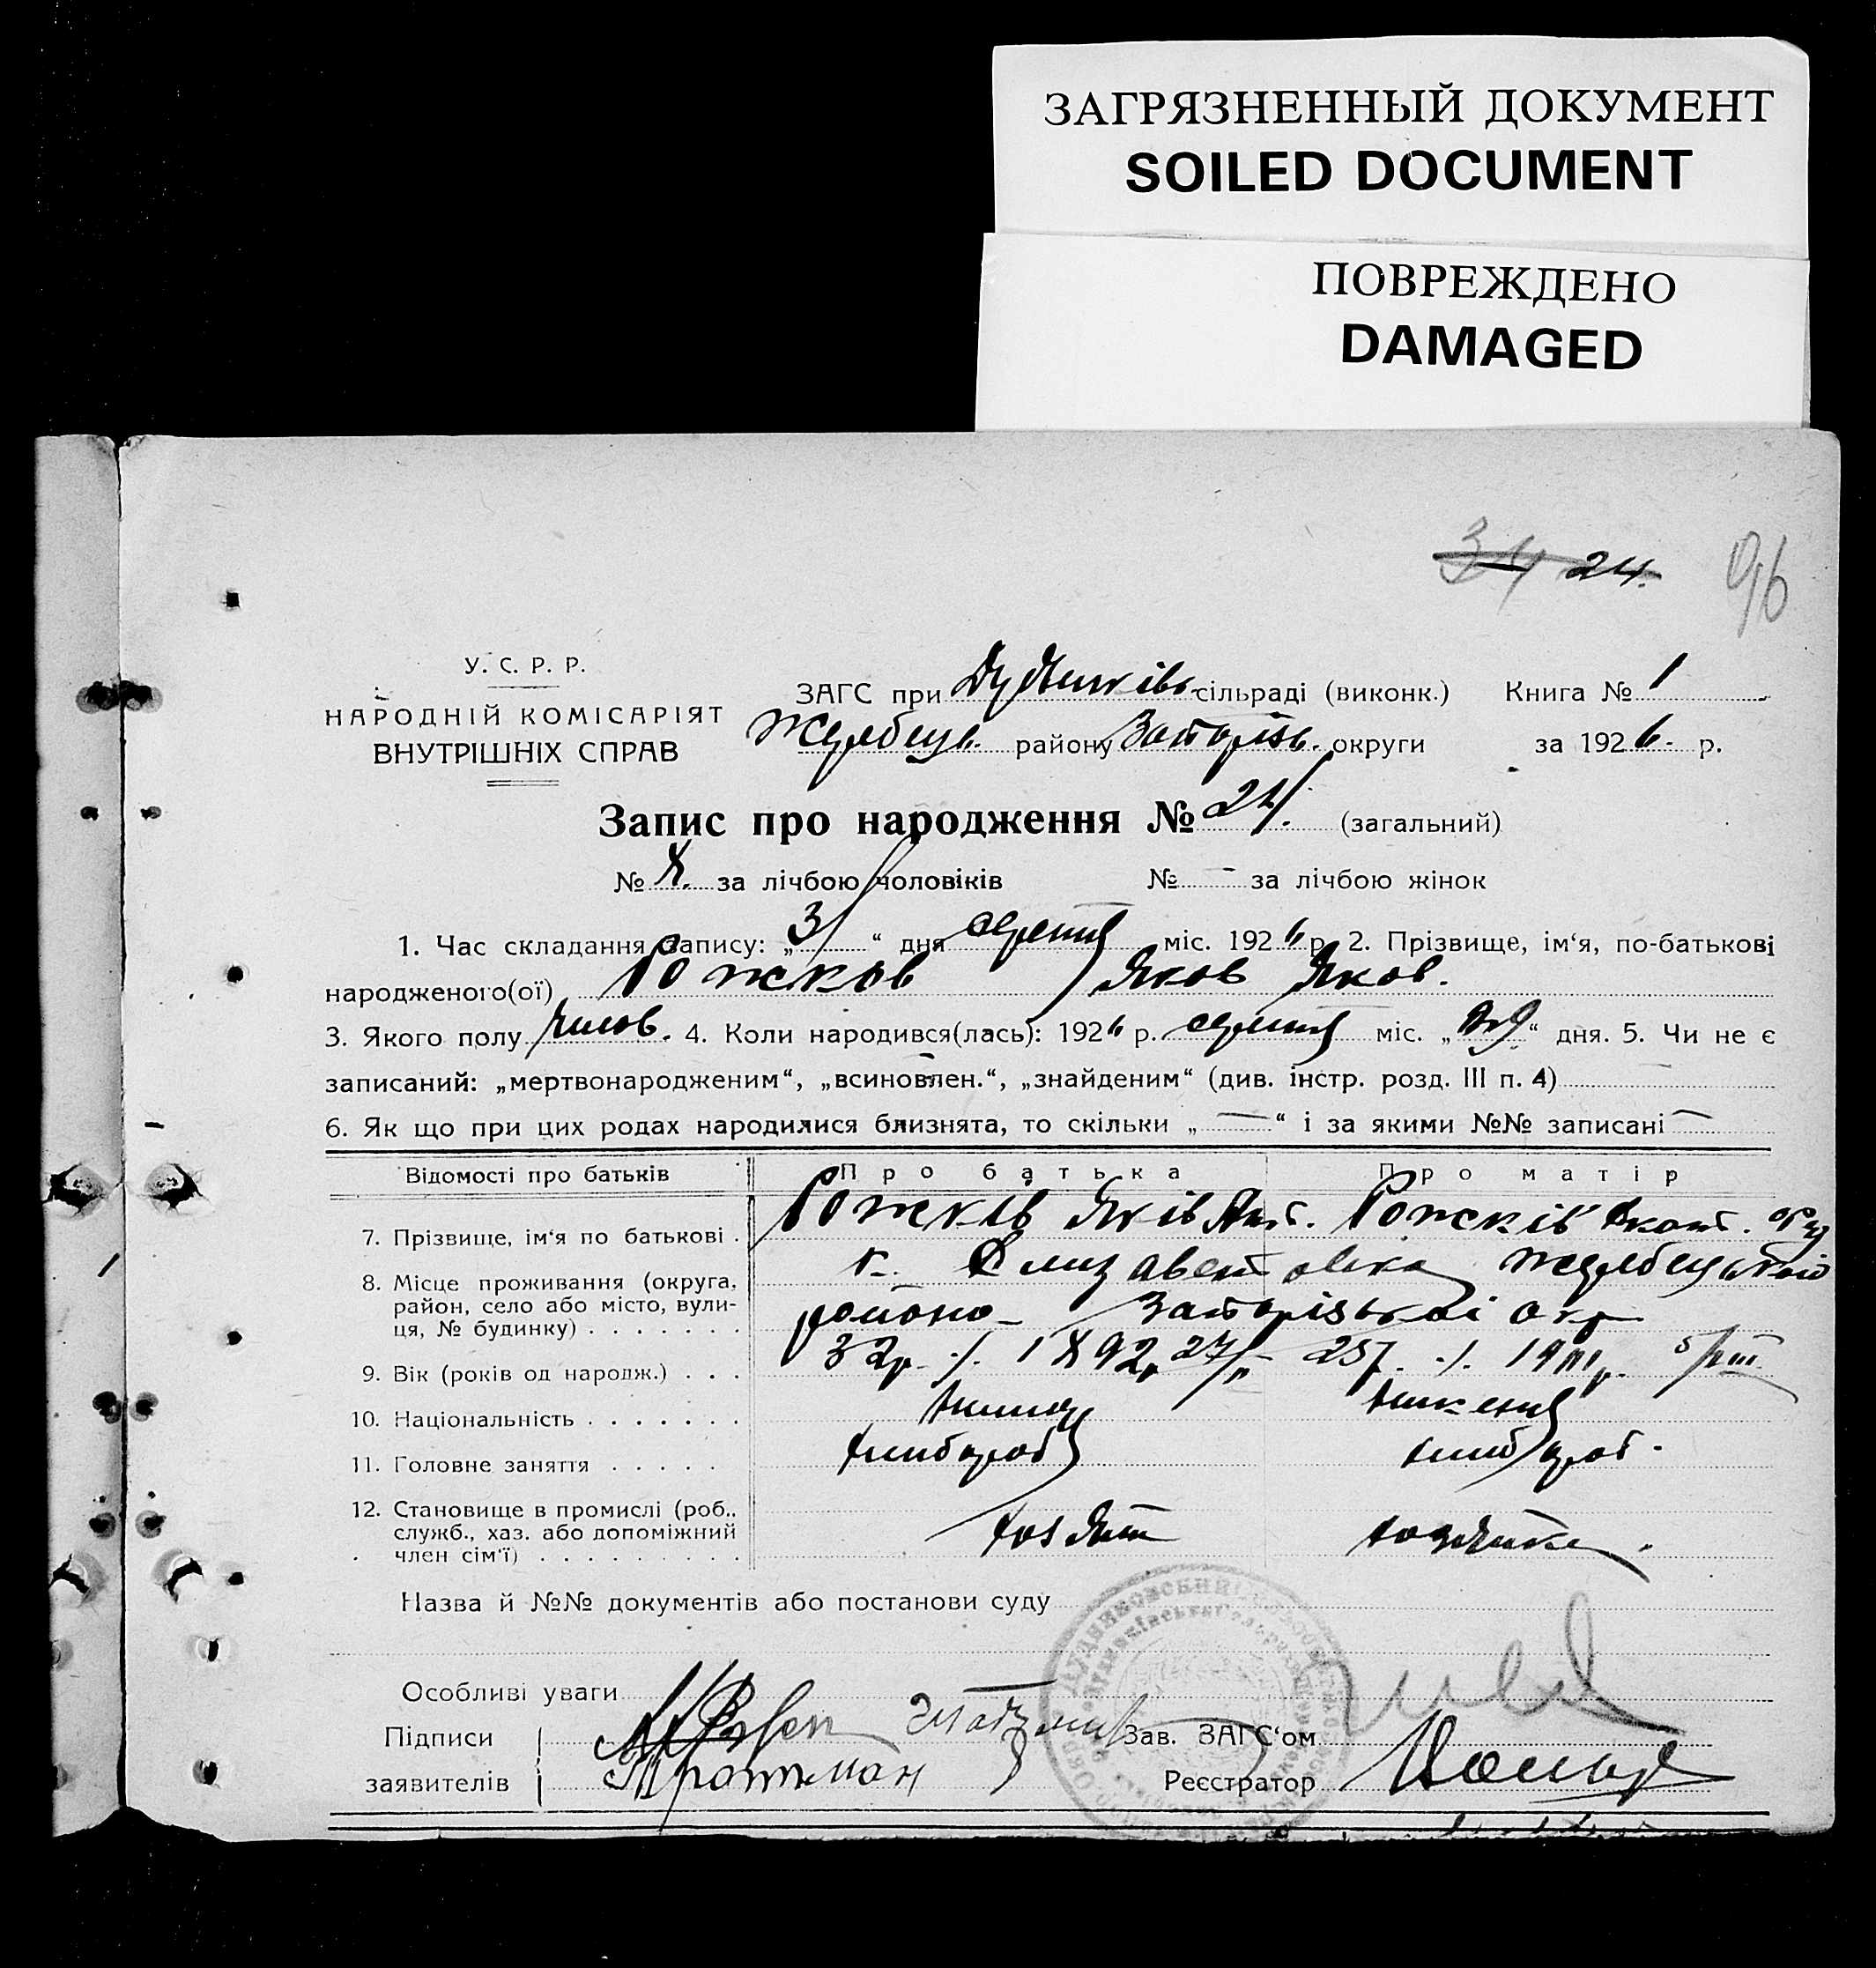 ЗАГРЯЗНЕННЫЙ ДОКУМЕНТ
SOILED DOCUMENT
ПОВРЕЖДЕНО
DAMAGED
34 24. 96
У. С. Р. Р.
НАРОДНІЙ КОМІСАРІЯТ
ВНУТРІШНІХ СПРАВ
ЗАГС при сільраді (виконк.) Книга № 1
Жеребець. району Запоріз. округи за 1926 р.
Запис про народження № 24. (загальний)
№ за лічбою чоловіків № - за лічбою жінок
1. Час складання запису: „31“ дня серпня міс. 1926 р. 2. Прізвище, ім‘я, по-батькові
народженого(ої) Рожков Яков Яков.
3. Якого полу чолов. 4. Коли народився(лась): 1926 р. серпня міс. „29“ дня. 5. Чи не є
записаний: „мертвонародженим“, „всиновлен.“, „знайденим“ (див. інстр. розд. III п. 4)
6. Як що при цих родах народилися близнята, то скільки „—“ і за якими №№ записані —
Відомості про батьків Про батька Про матір
7. Прізвище, ім‘я по батькові . Рожків Яків Рожків Екат.
8. Місце проживання (округа, Елизаветовка Жеребецького
район, село або місто, вули- району Запорізької окр
ця, № будинку) . . . . . . .
9. Вік (років од народж.) . . . 32р. 1892р 25р.
10. Національність . . . . . . .
11. Головне заняття . . . . . хлібороб хлібороб.
12. Становище в промислі (роб.,
служб., хаз. або допоміжний хозяїн хозяйка.
член сім‘ї) . . . . . . . . .
Назва й №№ документів або постанови суду
Особливі уваги
Підписи Зав. ЗАГС‘ом
заявителів Тротман Реєстратор